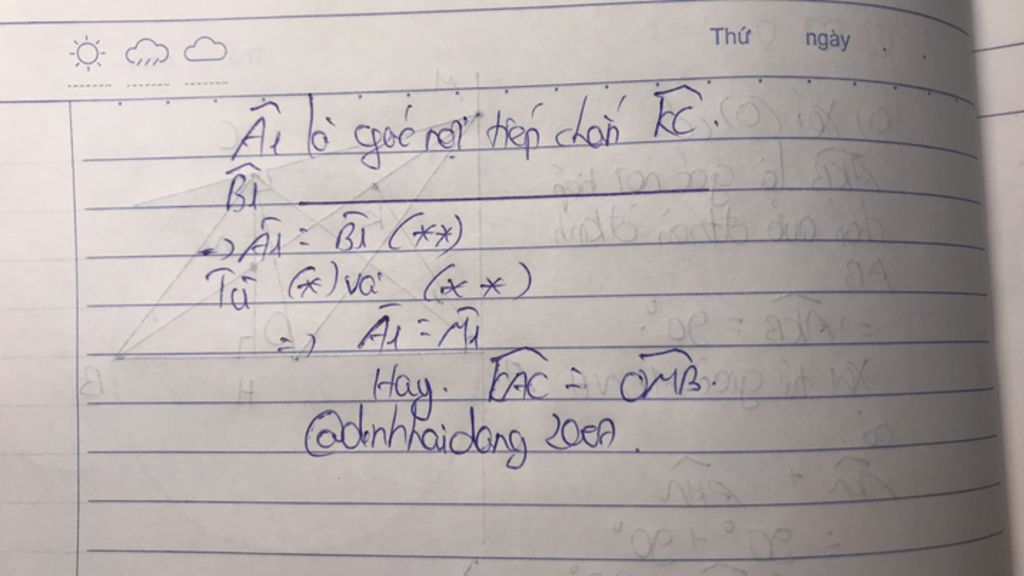 Thứ ngày
Â1 là góc nội tiếp chắn K͡C.
B̂1
=> Â1 = B̂1 (**)
Từ (*) và (**)
=> Â1 = M̂1
Hay. K͡AC = O͡MB.
@dinhhaidang 20